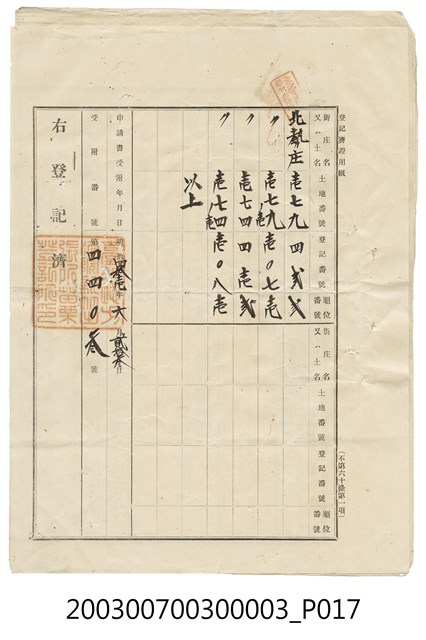 登記濟證用紙
街庄名又ハ土名
土地番號
登記番號
順位番號
街庄名又ハ土名
土地番號
登記番號
順位番號
(不第六十條第一項)
北勢庄 壱七九 四弐 弐
〃 壱七九 壱〇七 壱
〃 壱七四 四壱 弐
〃 壱七四 壱〇八 壱
以上
申請書受附年月日 年六月 日
受附番號 第四四〇參號
右登記濟
200300700300003_P017